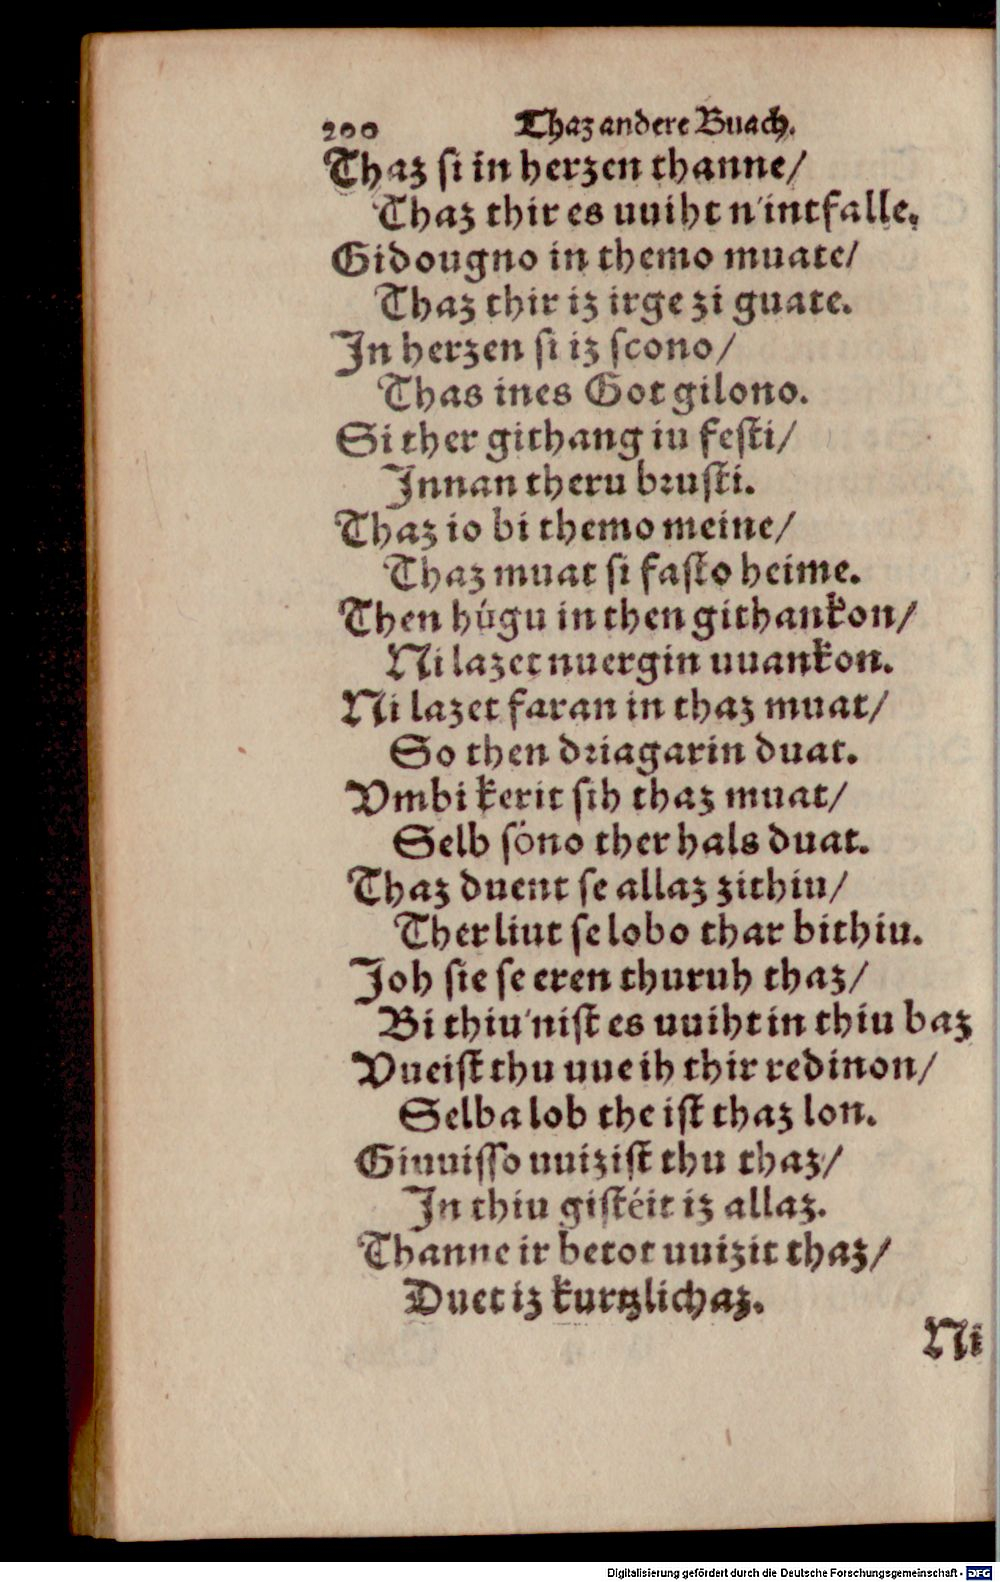 200 Thaz andere Buach.
Thaz si in herzen thanne/
Thaz thir es uuiht n'intfalle.
Gidougno in themo muate/
Thaz thir iz irge zi guate.
In herzen si iz scono/
Thas ines Got gilono.
Si ther githang iu festi/
Innan theru brusti.
Thaz io bi themo meine/
Thaz muat si fasto heime.
Then húgu in then githankon/
Ni lazet nuergin uuankon.
Ni lazet faran in thaz muat/
So then driagarin duat.
Vmbi kerit sih thaz muat/
Selb sóno ther hals duat.
Thaz duent se allaz zithiu/
Ther liut se lobo thar bithiu.
Joh sie se eren thuruh thaz/
Bi thiu'nist es uuiht in thiu baz
Vueist thu uue ih thir redinon/
Selba lob the ist thaz lon.
Giuuisso uuizist thu thaz/
In thiu gistéit iz allaz.
Thanne ir betot uuizit thaz/
Duet iz kurtzlichaz.
Ni
Digitalisierung gefördert durch die Deutsche Forschungsgemeinschaft - DFG